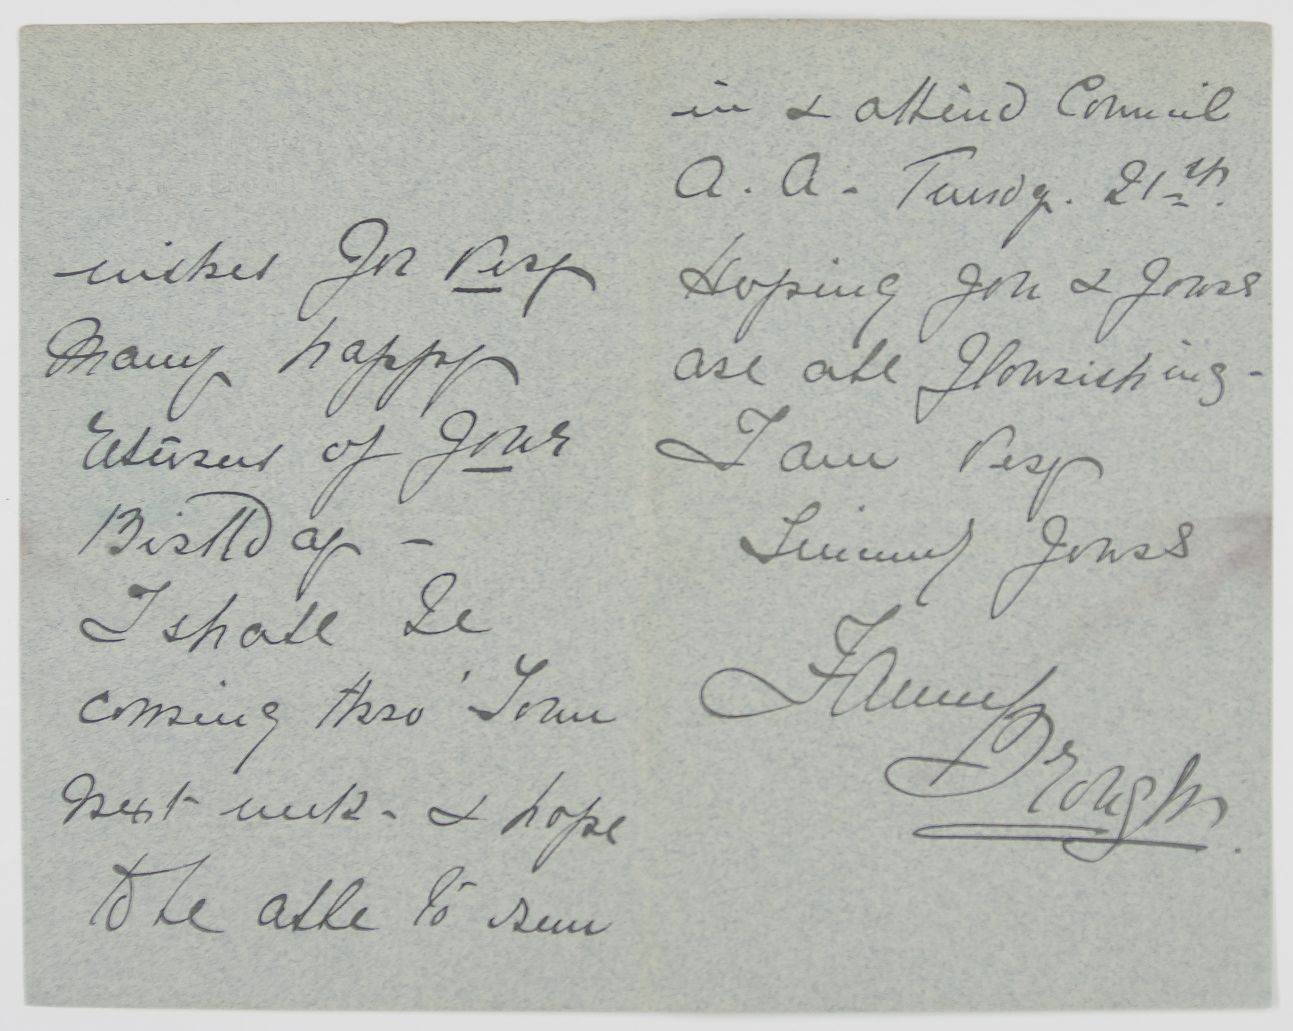 wishes you very
Many happy
returns of your
Birthday -
I shall be
coming thro' Town
next week - & hope
to be able to run
in & attend Council
A. A. - Tuesdy. 21st.
Hoping you & yours
are all flourishing -
I am very
Sincerely yours
Fanny
Drough